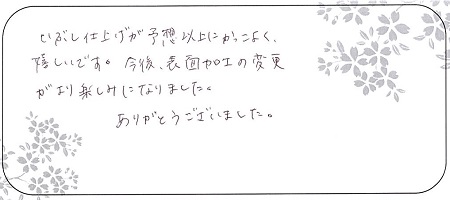 いぶし仕上げが予想以上にかっこよく、
嬉しいです。今後、表面加工の変更
がより楽しみになりました。
ありがとうございました。